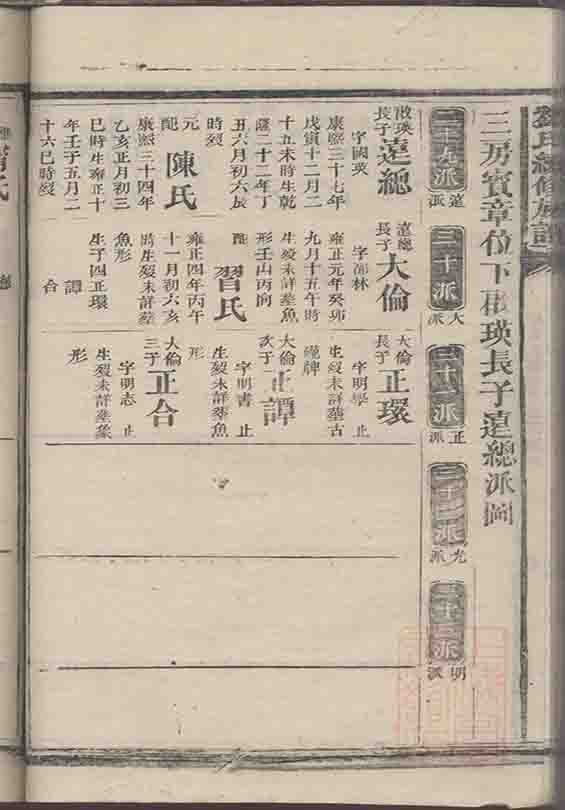 氏續修族譜
三房賓章位下啟瑛長子遠總派圖
二十九派
遠派
三十派
大派
三十一派
正派
三十二派
光派
三十三派
明派
啟瑛
長子
遠總
字國英
康熙三十七年
戊寅十二月二
十五未時生乾
隆二十二年丁
丑六月初六辰
時歿
元
配
陳氏
康熙三十四年
乙亥正月初三
巳時生雍正十
年壬子五月二
十六巳時歿
遠總
長子
大倫
字 林
雍正元年癸卯
九月十五午時
生歿未詳葬魚
形壬山丙向
配
習氏
雍正四年丙午
十一月初六亥
時生歿未詳葬
魚形
生子四正環
譚
合
大倫
長子
正環
字明學 止
生歿未詳葬古
牌
大倫
次子
正譚
字明書 止
生歿未詳葬魚
形
大倫
三子
正合
字明志 止
生歿未詳葬象
形